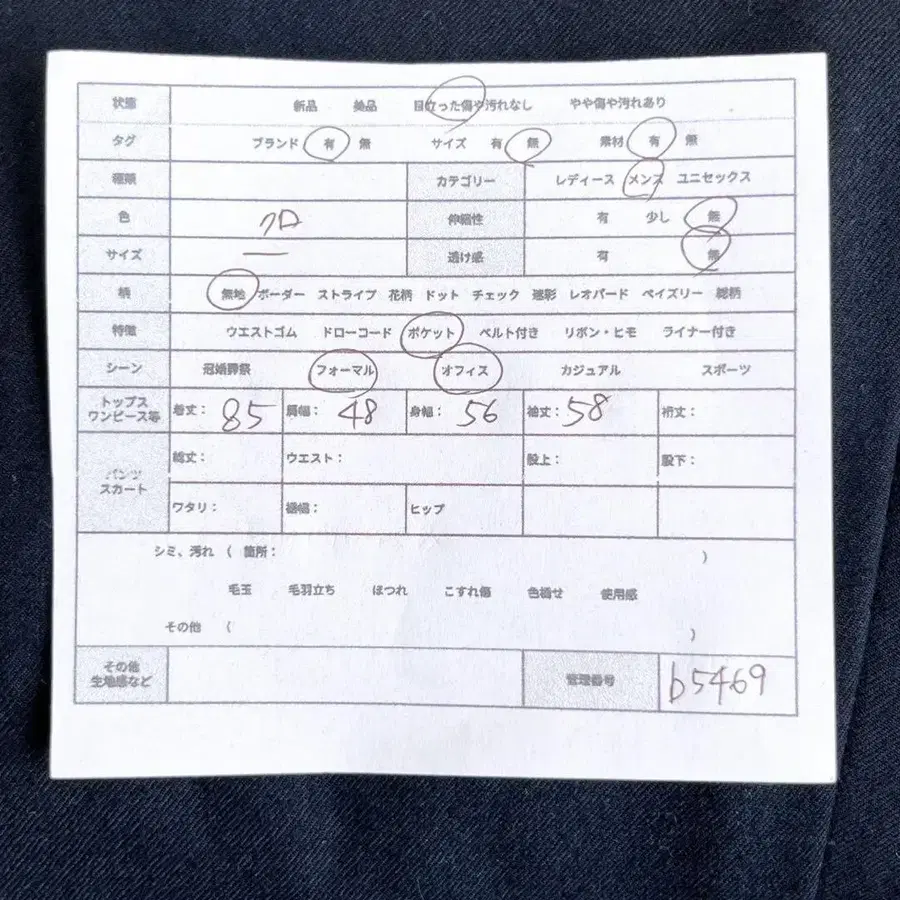 状態 新品 美品 目立った傷や汚れなし やや傷や汚れあり
タグ ブランド 有 無 サイズ 有 無 素材 有 無
種類 カテゴリー レディース メンズ ユニセックス
色 クロ 伸縮性 有 少し 無
サイズ — 透け感 有 無
柄 無地 ボーダー ストライプ 花柄 ドット チェック 迷彩 レオパード ペイズリー 総柄
特徴 ウエストゴム ドローコード ポケット ベルト付き リボン・ヒモ ライナー付き
シーン 冠婚葬祭 フォーマル オフィス カジュアル スポーツ
トップス
ワンピース等 着丈: 85 肩幅: 48 身幅: 56 袖丈: 58 裄丈:
パンツ
スカート 総丈: ウエスト: 股上: 股下:
ワタリ: 裾幅: ヒップ
シミ、汚れ ( 箇所: )
毛玉 毛羽立ち ほつれ こすれ傷 色褪せ 使用感
その他 ( )
その他
生地感など 管理番号 b5469